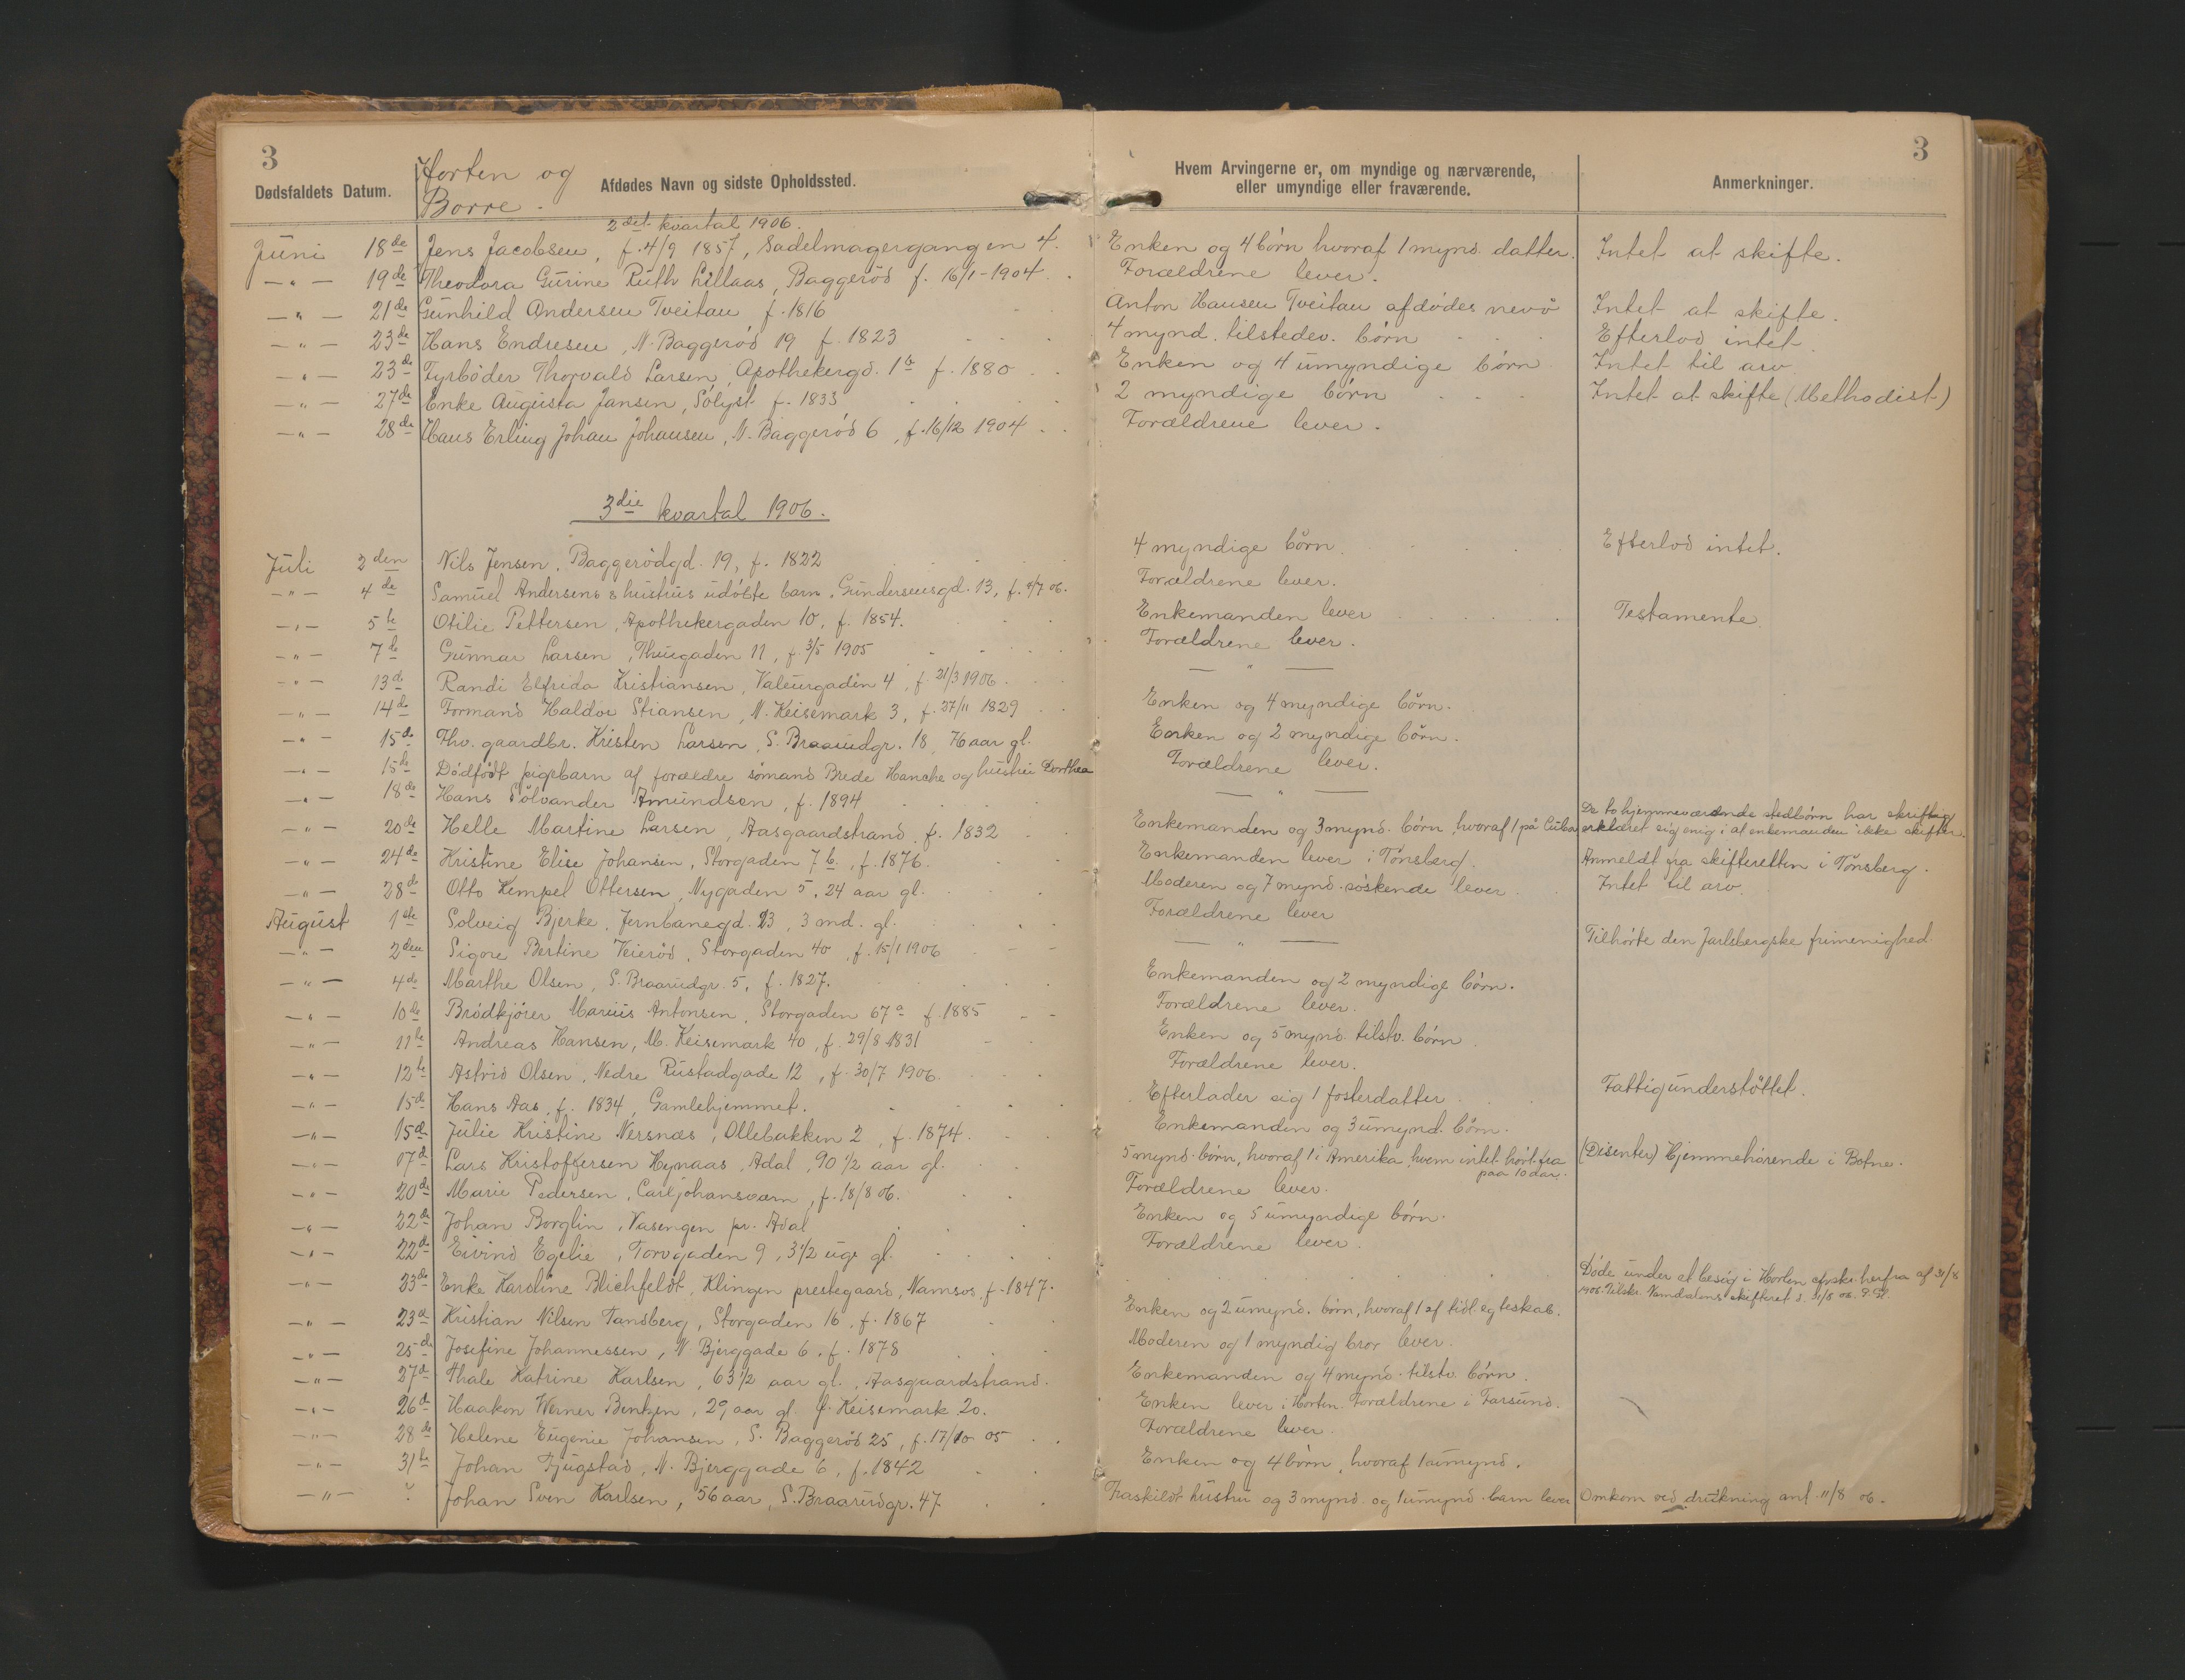 3
Horten og
Borre.
Dødsfaldets Datum.
Afdødes Navn og sidste Opholdssted.
Hvem Arvingerne er, om myndige og nærværende,
eller umyndige eller fraværende.
Anmerkninger.
3
2det kvartal 1906.
Juni 18de Jens Jacobsen, f. 4/9 1857, Sadelmagergangen 4. Enken og 4 børn hvoraf 1 mynd. datter. Intet at skifte.
—"— 19de Theodora Gurine Ruth Lillaas, Baggerød f. 16/1-1904. Forældrene lever.
—"— 21de Gunhild Andersen Tveitan f. 1816 Anton Hansen Tveitan afdødes nevø Intet at skifte.
—"— 23de Hans Endresen, N. Baggerød 19 f. 1823 4 mynd. tilstedev. børn Efterlod intet.
—"— 23de Fyrbøder Thorvald Larsen, Apothekergd. 1b f. 1880 Enken og 4 umyndige børn Intet til arv.
—"— 27de Enke Augusta Jansen, Sólyst f. 1833 2 myndige børn Intet at skifte (Methodist)
—"— 28de Hans Erling Johan Johansen, N. Baggerød 6, f. 16/12 1904 Forældrene lever.
3die kvartal 1906.
Juli 3den Nils Jensen, Baggerødgd. 19, f. 1822 4 myndige børn. Efterlod intet.
—"— 4de Samuel Andersens & hustrus udøbte barn, Gundersensgd. 13, f. 4/7 06. Forældrene lever.
—"— 5te Otilie Pettersen, Apothekergaden 10, f. 1854. Enkemanden lever Testamente.
—"— 7de Gunnar Larsen, Thuegaden 11, f. 3/5 1905 Forældrene lever.
—"— 13de Randi Elfrida Kristiansen, Valeurgaden 4, f. 21/3 1906. — " —
—"— 14de Formand Haldor Stiansen, N. Keisemark 3, f. 27/11 1829 Enken og 4 myndige børn.
—"— 15de Fhv. gaardbr. Kristen Larsen, S. Braarudgr. 18, 76 aar gl. Enken og 2 myndige børn.
—"— 15de Dødfødt pigebarn af forældre sømand Brede Hanche og hustru Dorthea Forældrene lever.
—"— 18de Hans Sølvander Amundsen, f. 1894 — " —
—"— 20de Helle Martine Larsen, Aasgaardstrand, f. 1832 Enkemanden og 3 mynd. børn, hvoraf 1 på Cuba De to hjemmeværende stedbørn har skriftlig
erklæret sig enig i at enkemanden ikke skifter.
—"— 24de Kristine Elise Johansen, Storgaden 7b, f. 1876. Enkemanden lever i Tønsberg. Anmeldt fra skifteretten i Tønsberg.
—"— 28de Otto Kempel Ottersen, Nygaden 5, 24 aar gl. Moderen og 7 mynd. søskende lever Intet til arv.
August 1ste Solveig Bjerke, Jernbanegd. 23, 3 md. gl. Forældrene lever
—"— 2den Signe Bertine Veierød, Storgaden 40, f. 15/1 1906 — " — Tilhørte den Jarlsbergske frimenighed.
—"— 4de Marthe Olsen, S. Braarudgr. 5, f. 1827. Enkemanden og 2 myndige børn.
—"— 10de Brødkjører Marius Antonsen, Storgaden 67a f. 1885 Forældrene lever.
—"— 11te Andreas Hansen, M. Keisemark 40, f. 29/8 1831 Enken og 5 mynd. tilstv. børn
—"— 12te Astrid Olsen, Nedre Rustadgade 12, f. 30/7 1906. Forældrene lever.
—"— 15de Hans Aas, f. 1834, Gamlehjemmet. Efterlader sig 1 fosterdatter Fattigunderstøttet.
—"— 15de Julie Kristine Nersnæs, Ollebakken 2, f. 1874. Enkemanden og 3 umynd. børn.
—"— 07de Lars Kristoffersen Hynaas, Adal, 90 1/2 aar gl. 5 mynd. børn, hvoraf 1 i Amerika, hvem intet hørt fra
paa 10 aar. (Disenter) Hjemmehørende i Botne.
—"— 20de Marie Pedersen, Carljohansværn, f. 18/8 06. Forældrene lever.
—"— 22de Johan Borglin, Vasengen pr. Adal Enken og 5 umyndige børn.
—"— 22de Eivind Egelie, Torvgaden 9, 3 1/2 uge gl. Forældrene lever.
—"— 23de Enke Karoline Blichfeldt, Klingen prestegaard, Namsos, f. 1847. Døde under et besøg i Horten afskr. herfra af 31/8
1906. Tilskr. Namdalens skifteret d. 31/8 06.
—"— 23de Kristian Nilsen Tandberg, Storgaden 16, f. 1867 Enken og 2 umynd. børn, hvoraf 1 af tidl. egteskab.
—"— 25de Josefine Johannessen, N. Bjerggade 6, f. 1878 Moderen og 1 myndig bror lever.
—"— 27de Thale Katrine Karlsen, 63 1/2 aar gl., Aasgaardstrand. Enkemanden og 4 mynd. tilstv. børn.
—"— 26de Haakon Werner Bentzen, 29 aar gl. Keisemark 20. Enken lever i Horten. Forældrene i Farsund.
—"— 28de Helene Eugenie Johansen, S. Baggerød 25, f. 17/10 05 Forældrene lever.
—"— 31te Johan Fjugstad, N. Bjerggade 6, f. 1842 Enken og 4 børn, hvoraf 1 umynd.
—"— ? Johan Sven Karlsen, 56 aar, S. Braarudgr. 47 Fraskildt hustru og 3 mynd. og 1 umynd. barn lever Omkom ved drukning anf. 11/8 06.